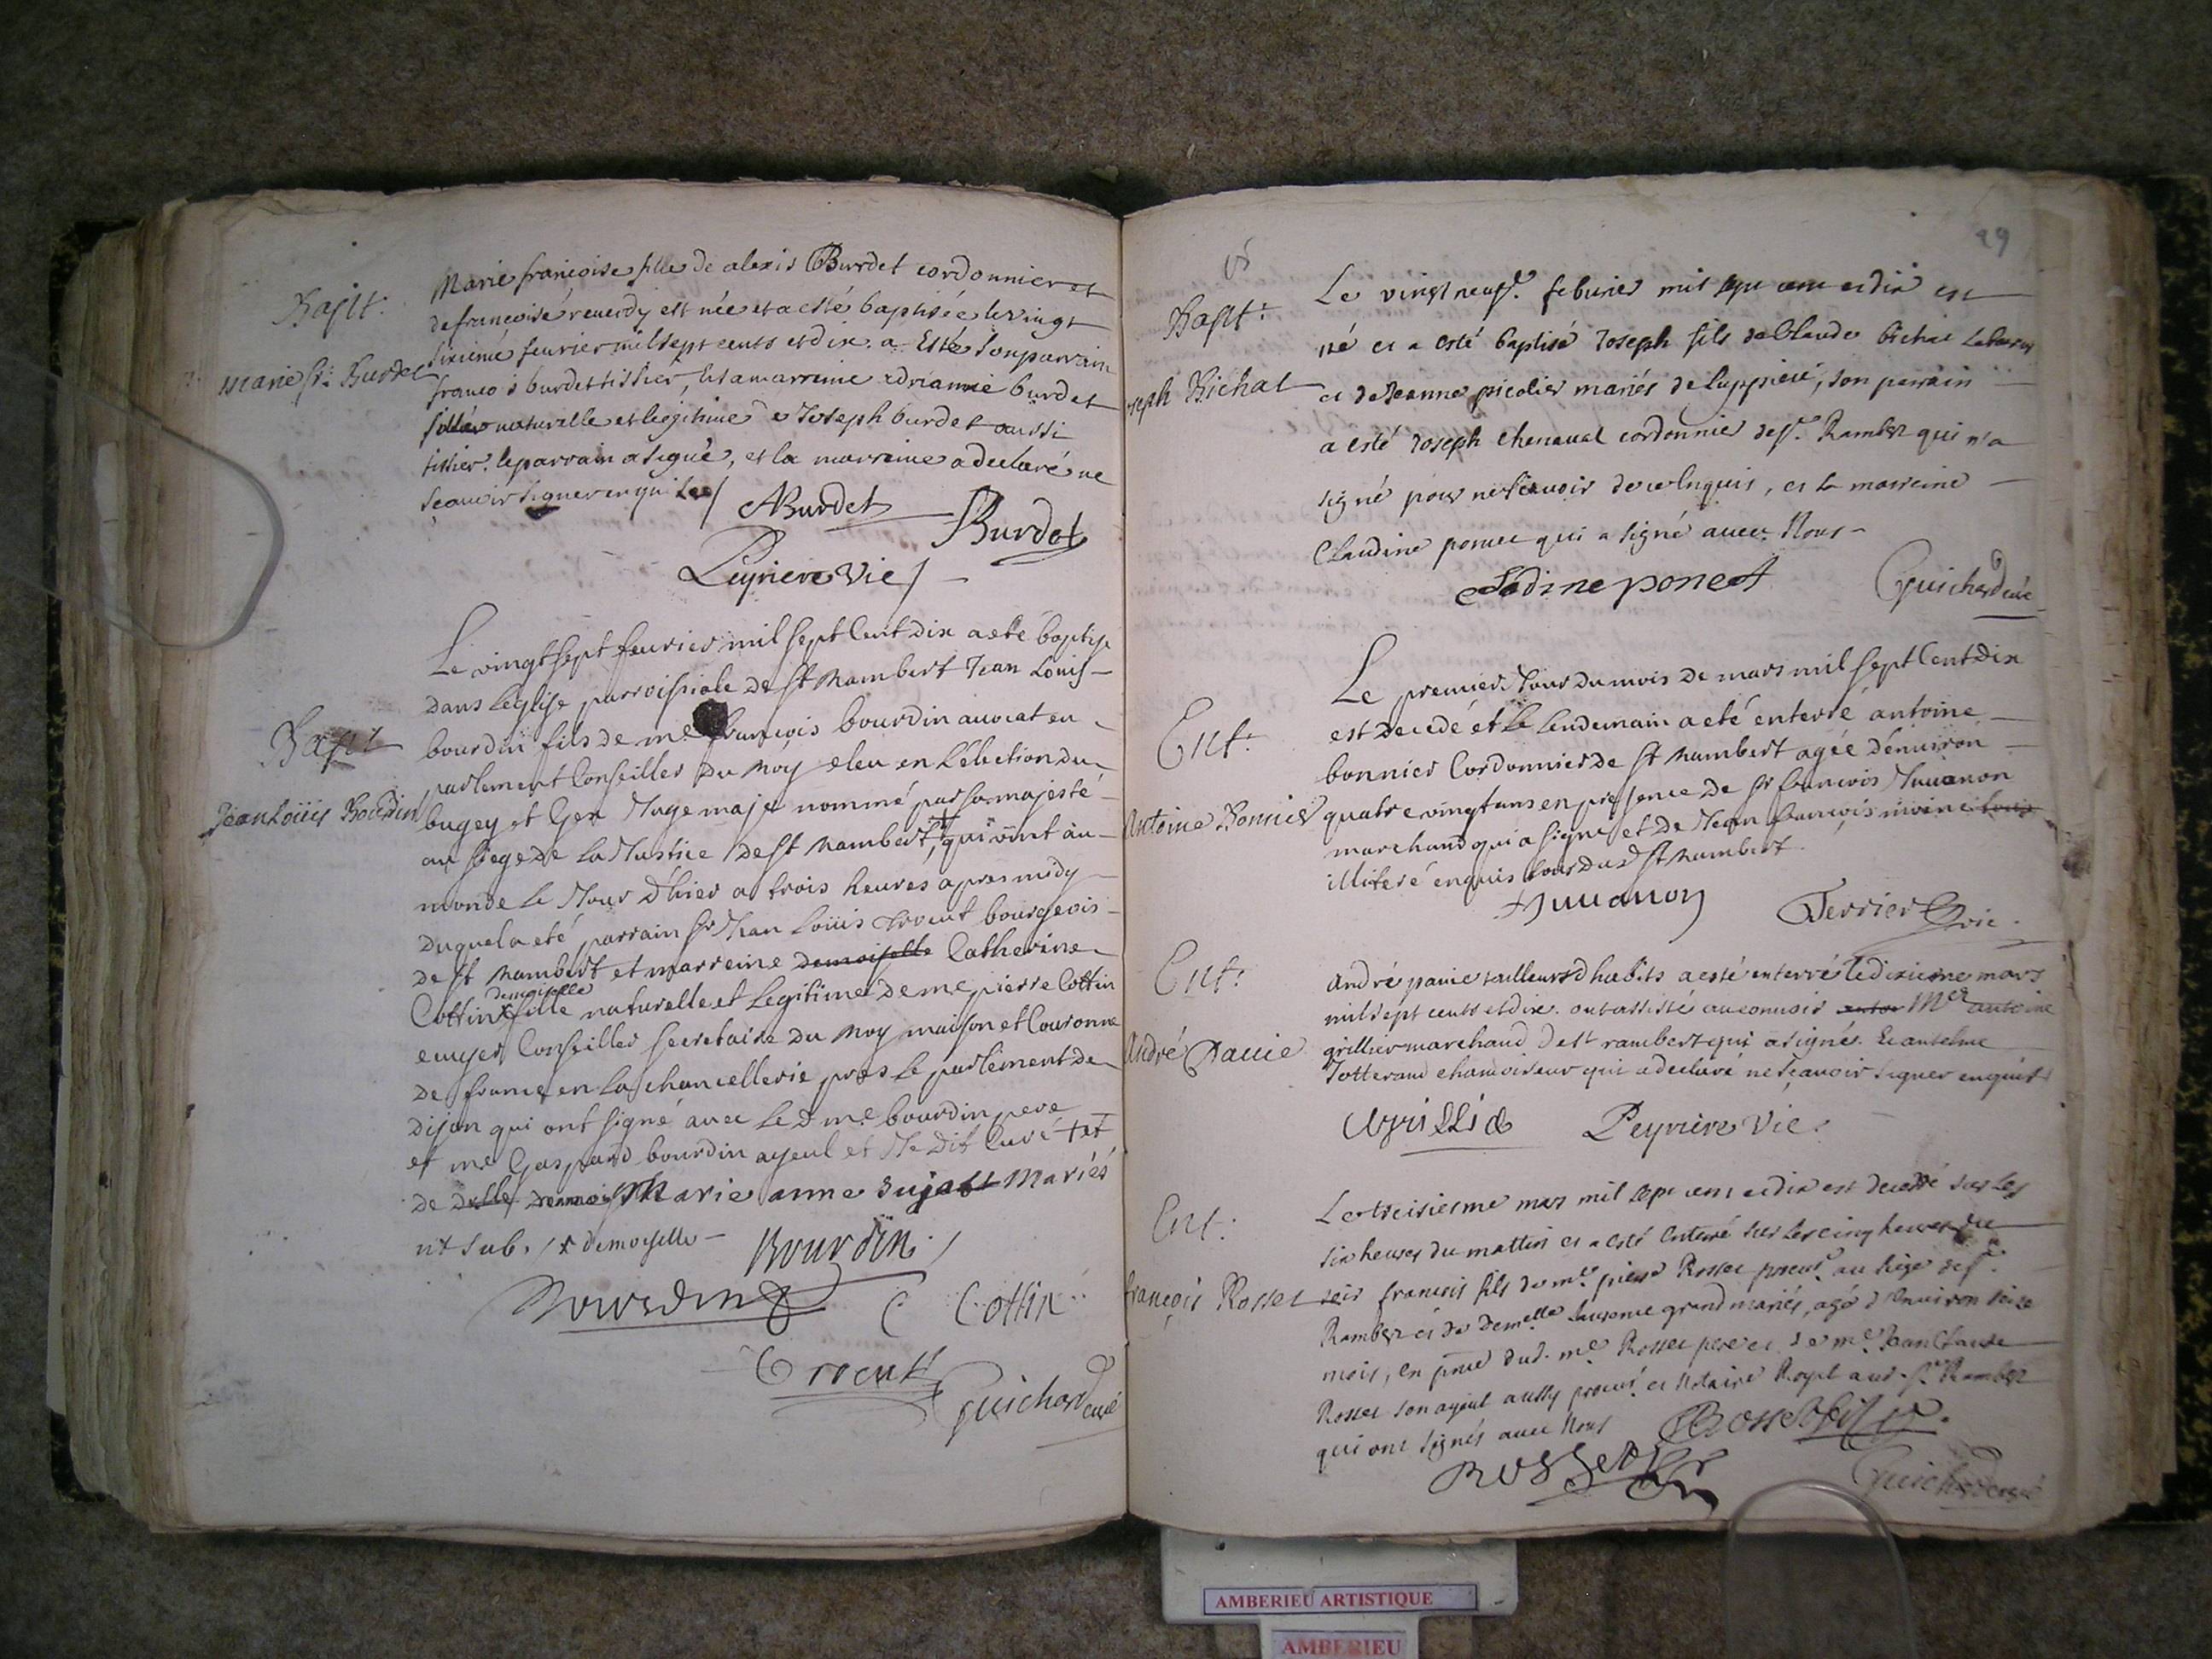 Bapt:
Marie fr: Burdet
Marie francoise fille de alexis Burdet cordonnier et
de francoise reverdy est née et a esté baptisée le vingt
sixieme feurier mil sept cents et dix. a Esté son parrain
franco s burdet tissier, et sa marreine adrianne burdet
fille naturelle et legitime de Joseph burdet aussi
tissier. le parrain a signé, et la marreine a declaré ne
sçauoir signer enquise
ABurdet
Burdet
Peyriere Vic
Bapt
Jean Loüis Bourdin
Le vingt sept feurier mil sept Cent dix a eté baptisé
dans L'eglise parroissiale de St Rambert Jean Louis
bourdin fils de me francois bourdin auocat en
parlement Conseiller du Roy eleu en L'election du
bugey et Gex Juge maje nommé par sa majesté
au siege de La Justice de St Rambert, qui vint au
monde Le Jour d'hier a trois heures apres midy
duquel a eté parrain sr Jean Loüis trocut bourgeois
de St Rambert et marreine demoiselle Catherine
Cottin demoiselle fille naturelle et Legitime de me pierre Cottin
ecuyer Conseiller secretaire du Roy maison et Couronne
de france en La chancellerie pres Le parlement de
dijon qui ont signé auec Led me bourdin pere
et me Gaspard bourdin ayeul et Je dit Curé + et
de delle Marie anne sujast Mariés
ut sub. / x demoyselle
Bourdin
Bourdin
C Cottin
trocut
Guichard curé
29
Bapt:
seph Bichat
Le vingt neuf.e feburier mil sept cent et dix est
né et a esté baptisé Joseph fils de Claude bichat Laboureur
et de Jeanne picolier mariés de Luppieu, son parrain
a esté Joseph chenaual cordonnier de st. Rambert qui n'a
signé pour ne sçauoir de ce Enquis, et la marreine
Claudine poncet qui a signé auec Nous
Clodine ponet
Guichard curé
Ent:
Antoine Bonnier
Le premier Jour du mois de mars mil sept Cent dix
est decedé et Le Lendemain a eté enterré antoine
bonnier Cordonnier de St Rambert agée d'enuiron
quatre vingt ans en presence de sr francois Juuanon
marchand qui a signé et de Jean francois
illiteré enquis tous dud St Rambert.
Juuanon
Terrier Vic.
Ent:
André Pauie
André pauie tailleur d'habits a esté enterré le dixieme mars
mil sept cents et dix. ont assisté au conuoir Mer antoine
grillier marchand de st rambert qui a signé. Et anselme
Jotterand chamoiseur qui a declaré ne sçauoir signer enquit
Grillié
Peyriere Vic.
Ent:
françois Rosset
Le treisiesme mars mil sept cent et dix est decedé sur les
six heures du mattin et a esté enterré sur les cinq heures du
soir francois fils de me. pierre Rosset procur. au siege de st.
Rambert et de demelle Laurence grand mariés, agé d'enuiron seize
mois, en pnce dud. me Rosset pere et de me. Jean Claude
Rosset son ayeul aussy procur. et Notaire Royal aud. st. Rambert
qui ont signés auec Nous
Rosset fils
Rosset
Guichard curé
AMBERIEU ARTISTIQUE
AMBERIEU